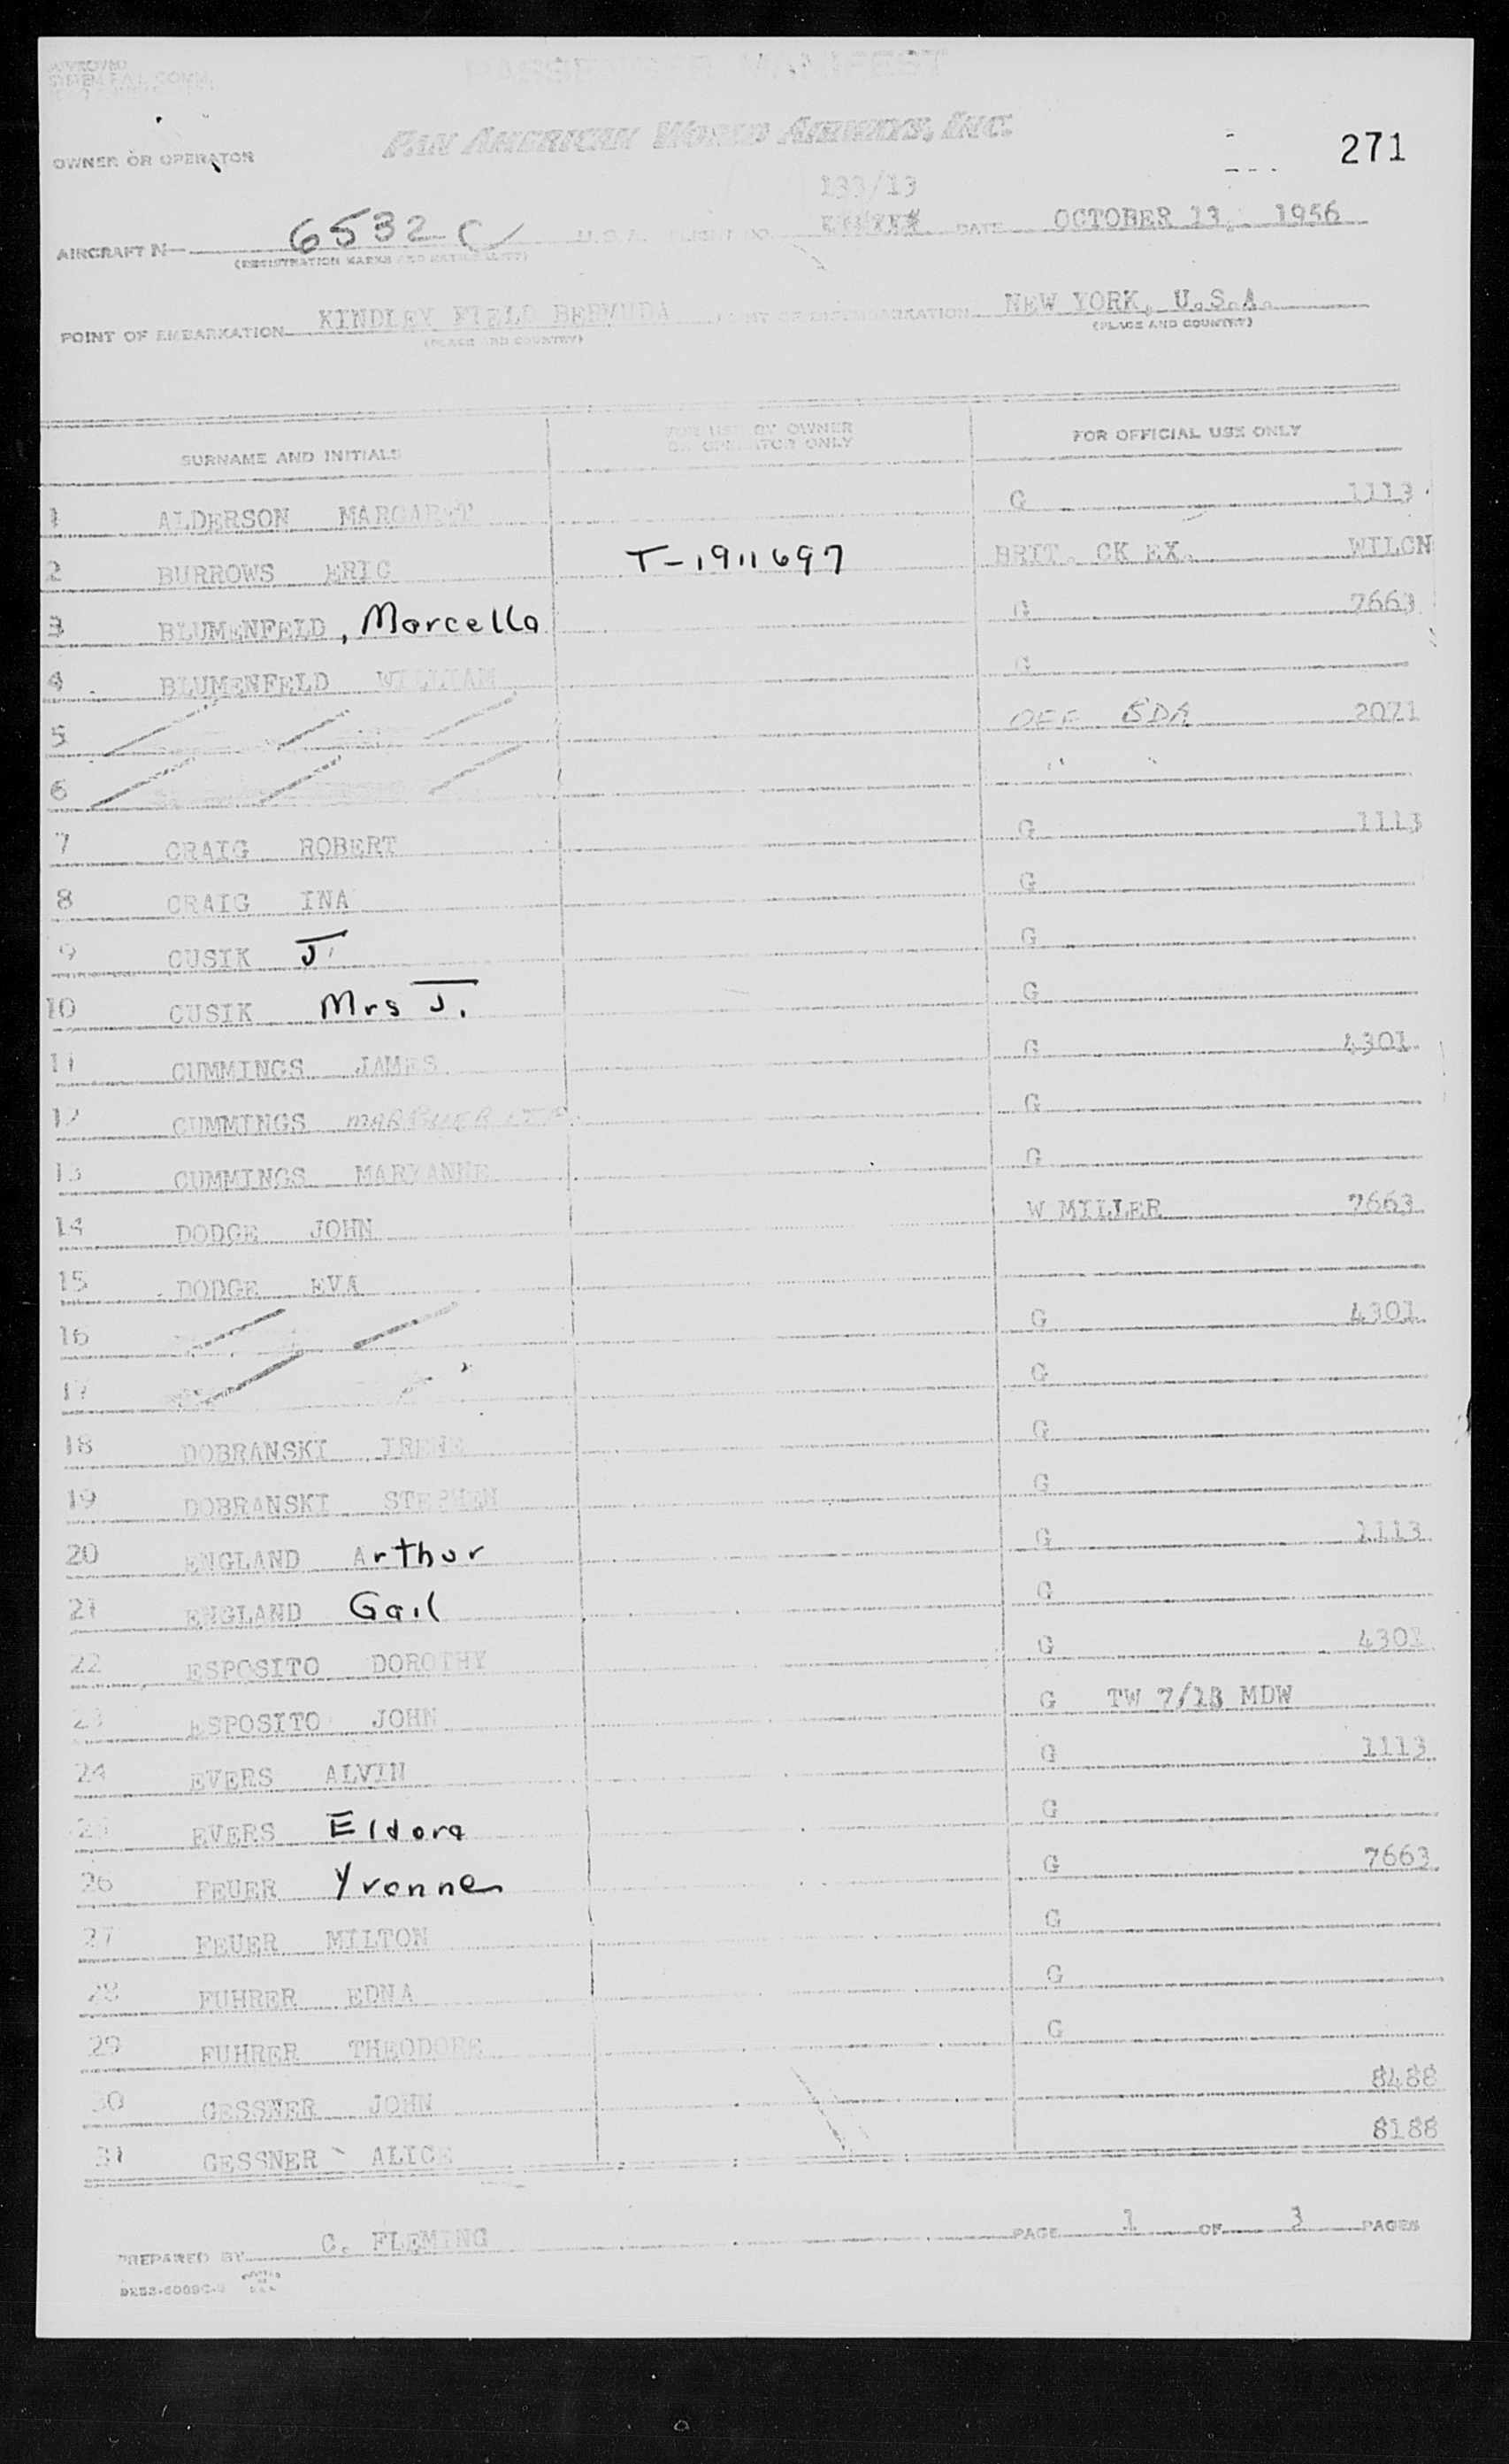 APPROVED
SYSTEM F.A.L. COMM.
PASSENGER MANIFEST
PAN AMERICAN WORLD AIRWAYS, INC.
271
OWNER OR OPERATOR
133/13
AIRCRAFT N- 6532 C U.S.A. FLIGHT NO. DATE OCTOBER 13, 1956
(REGISTRATION MARKS AND NATIONALITY)
POINT OF EMBARKATION KINDLEY FIELD BERMUDA POINT OF DISEMBARKATION NEW YORK, U.S.A.
(PLACE AND COUNTRY) (PLACE AND COUNTRY)
SURNAME AND INITIALS FOR USE BY OWNER OR OPERATOR ONLY FOR OFFICIAL USE ONLY
1 ALDERSON MARGARET G 1113
2 BURROWS ERIC T-1911697 BRIT. CK EX. WILCN
3 BLUMENFELD, Marcella G 7663
4 BLUMENFELD WILLIAM G
5 OFF BDA 2071
6 " "
7 CRAIG ROBERT G 1113
8 CRAIG INA G
9 CUSIK J G
10 CUSIK Mrs J. G
11 CUMMINGS JAMES G 4301
12 CUMMINGS G
13 CUMMINGS MARYANNE G
14 DODGE JOHN W MILLER 7663
15 DODGE EVA
16 G 4301
17 G
18 DOBRANSKI IRENE G
19 DOBRANSKI STEPHEN G
20 ENGLAND Arthur G 1113
21 ENGLAND Gail G
22 ESPOSITO DOROTHY G 4301
23 ESPOSITO JOHN G TW 7/13 MDW
24 EVERS ALVIN G 1113
25 EVERS Eldora G
26 FEUER Yvonne G 7663
27 FEUER MILTON G
28 FUHRER EDNA G
29 FUHRER THEODORE G
30 GESSNER JOHN 8488
31 GESSNER ALICE 8188
PREPARED BY C. FLEMING PAGE 1 OF 3 PAGES